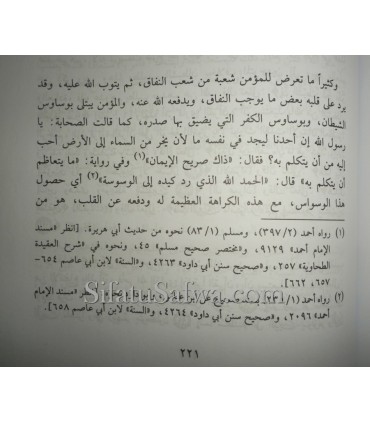 وكثيراً ما تعرض للمؤمن شعبة من شعب النفاق، ثم يتوب الله عليه، وقد
يرد على قلبه بعض ما يوجب النفاق، ويدفعه الله عنه، والمؤمن يبتلى بوساوس
الشيطان، وبوساوس الكفر التي يضيق بها صدره، كما قالت الصحابة: يا
رسول الله إن أحدنا ليجد في نفسه ما لأن يخر من السماء إلى الأرض أحب
إليه من أن يتكلم به؟ فقال: «ذاك صريح الإيمان»(١) وفي رواية: «ما يتعاظم
أن يتكلم به» قال: «الحمد الله الذي رد كيده إلى الوسوسة»(٢) أي حصول
هذا الوسواس، مع هذه الكراهة العظيمة له ودفعه عن القلب، هو من
(١) رواه أحمد (٣٩٧/٢)، ومسلم (٨٣/١) نحوه من حديث أبي هريرة. [انظر «مسند
الإمام أحمد» ٩١٢٩، و«مختصر صحيح مسلم» ٤٥، ونحوه في «شرح العقيدة
الطحاوية» ٢٥٧، و«صحيح سنن أبي داود» ٤٢٦٣، و«السنة» لابن أبي عاصم ٦٥٤-
٦٥٧، ٦٦٢].
(٢) رواه أحمد (١/ ابن «مسند الإمام
أحمد» ٢٠٩٦، و«صحيح سنن أبي داود» ٤٢٦٤، و«السنة» لابن أبي عاصم ٦٥٨].
SifatuSafwa.com
٢٢١